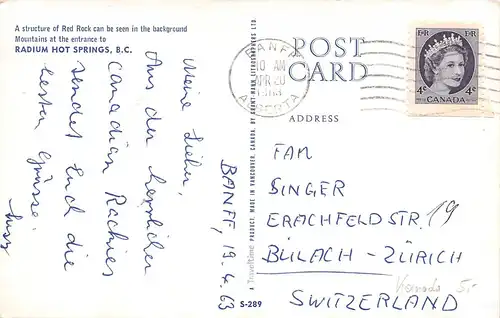 A structure of Red Rock can be seen in the background
Mountains at the entrance to
RADIUM HOT SPRINGS, B.C.
Meine Lieben,
Aus den herrlichen
Canadian Rackies
sendet Euch die
besten Grüsse.
BANFF, 19.4.63
S-289
A Traveltime PRODUCT. MADE IN VANCOUVER, CANADA, BY GRANT-MANN LITHOGRAPHERS LTD.
POST
CARD
ADDRESS
BANFF
10 AM
APR 20
ALBERTA
EIIR EIIR
4c 4c
CANADA
FAM
SINGER
ERACHFELDSTR. 19
BÜLACH-ZÜRICH
SWITZERLAND
Kanada 5.-